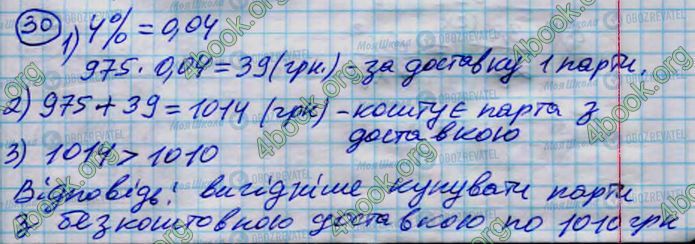 30
1) 4% = 0,04
975 · 0,04 = 39 (грн.) - за доставку 1 парти.
2) 975 + 39 = 1014 (грн) - коштує парта з
доставкою
3) 1014 > 1010
Відповідь: вигідніше купувати парти
з безкоштовною доставкою по 1010 грн